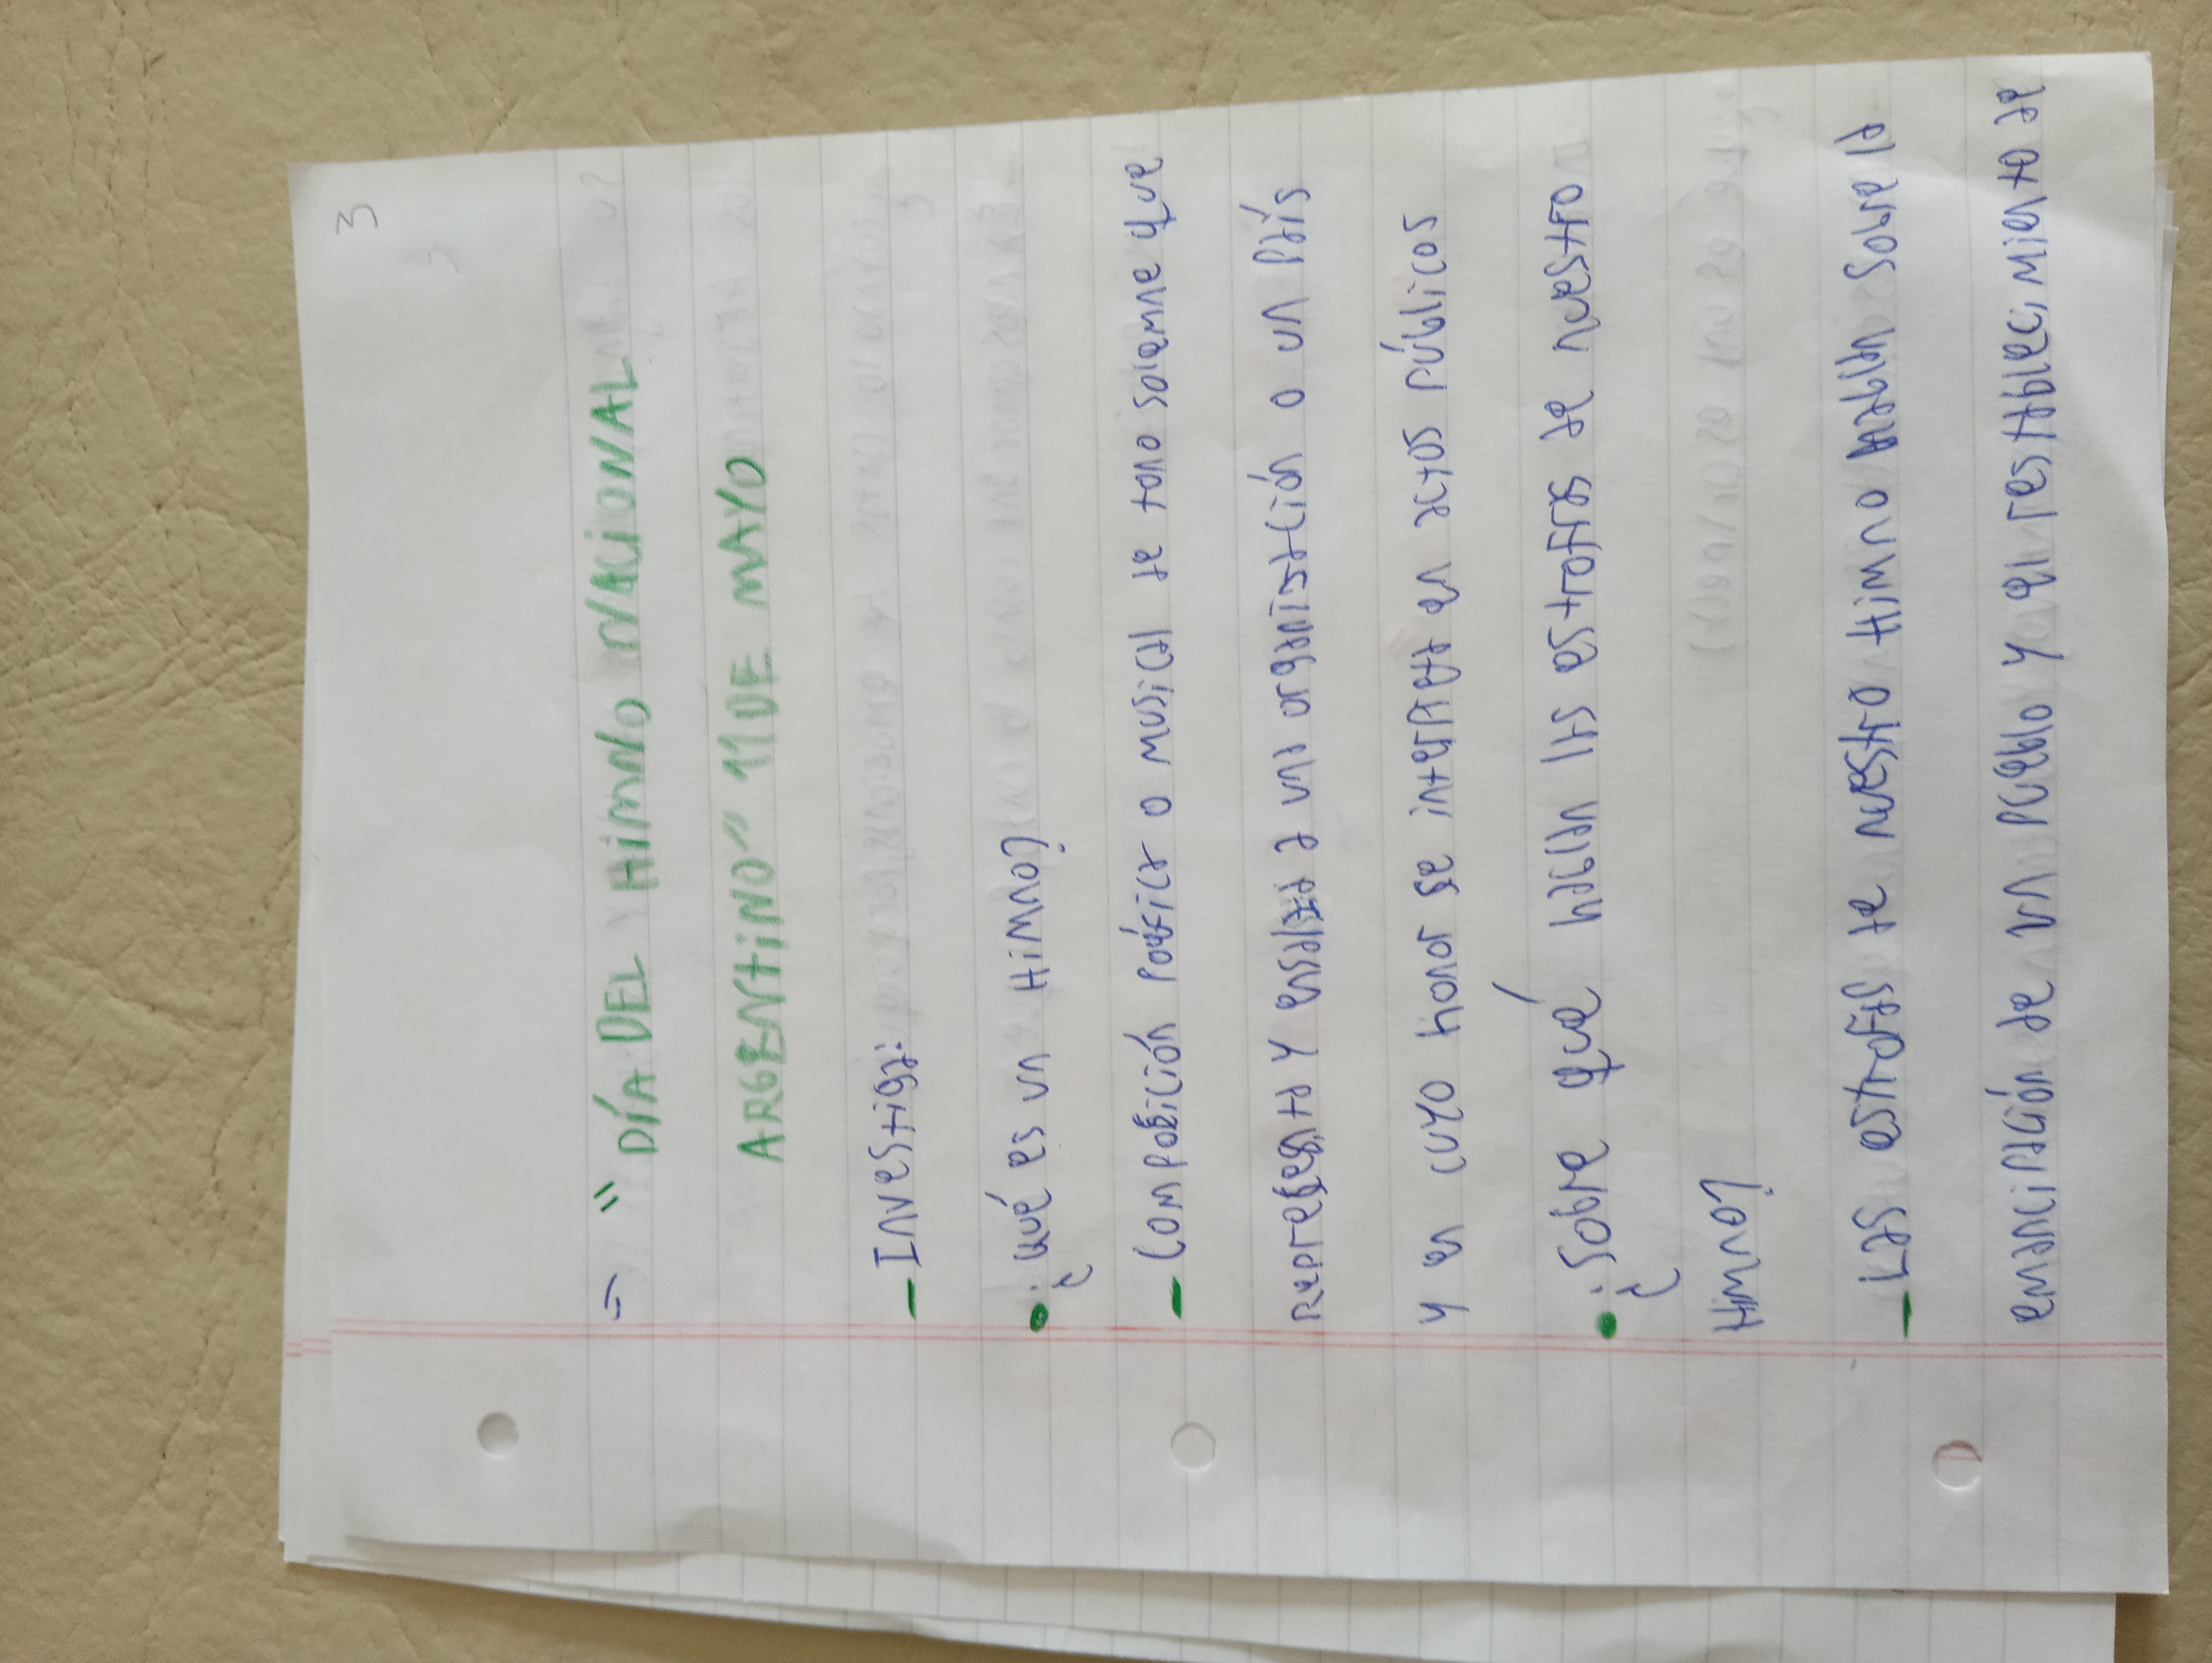 3
⇒ "DÍA DEL HIMNO NACIONAL
ARGENTINO" 11 DE MAYO
– Investiga:
• ¿Qué es un Himno?
– Composición poética o musical de tono solemne que
representa y ensalza a una organización o un país
y en cuyo honor se interpreta en actos públicos
• ¿Sobre qué habla las estrofas de nuestro
Himno?
– Las estrofas de nuestro Himno hablan sobre la
emancipación de un pueblo y el establecimiento de